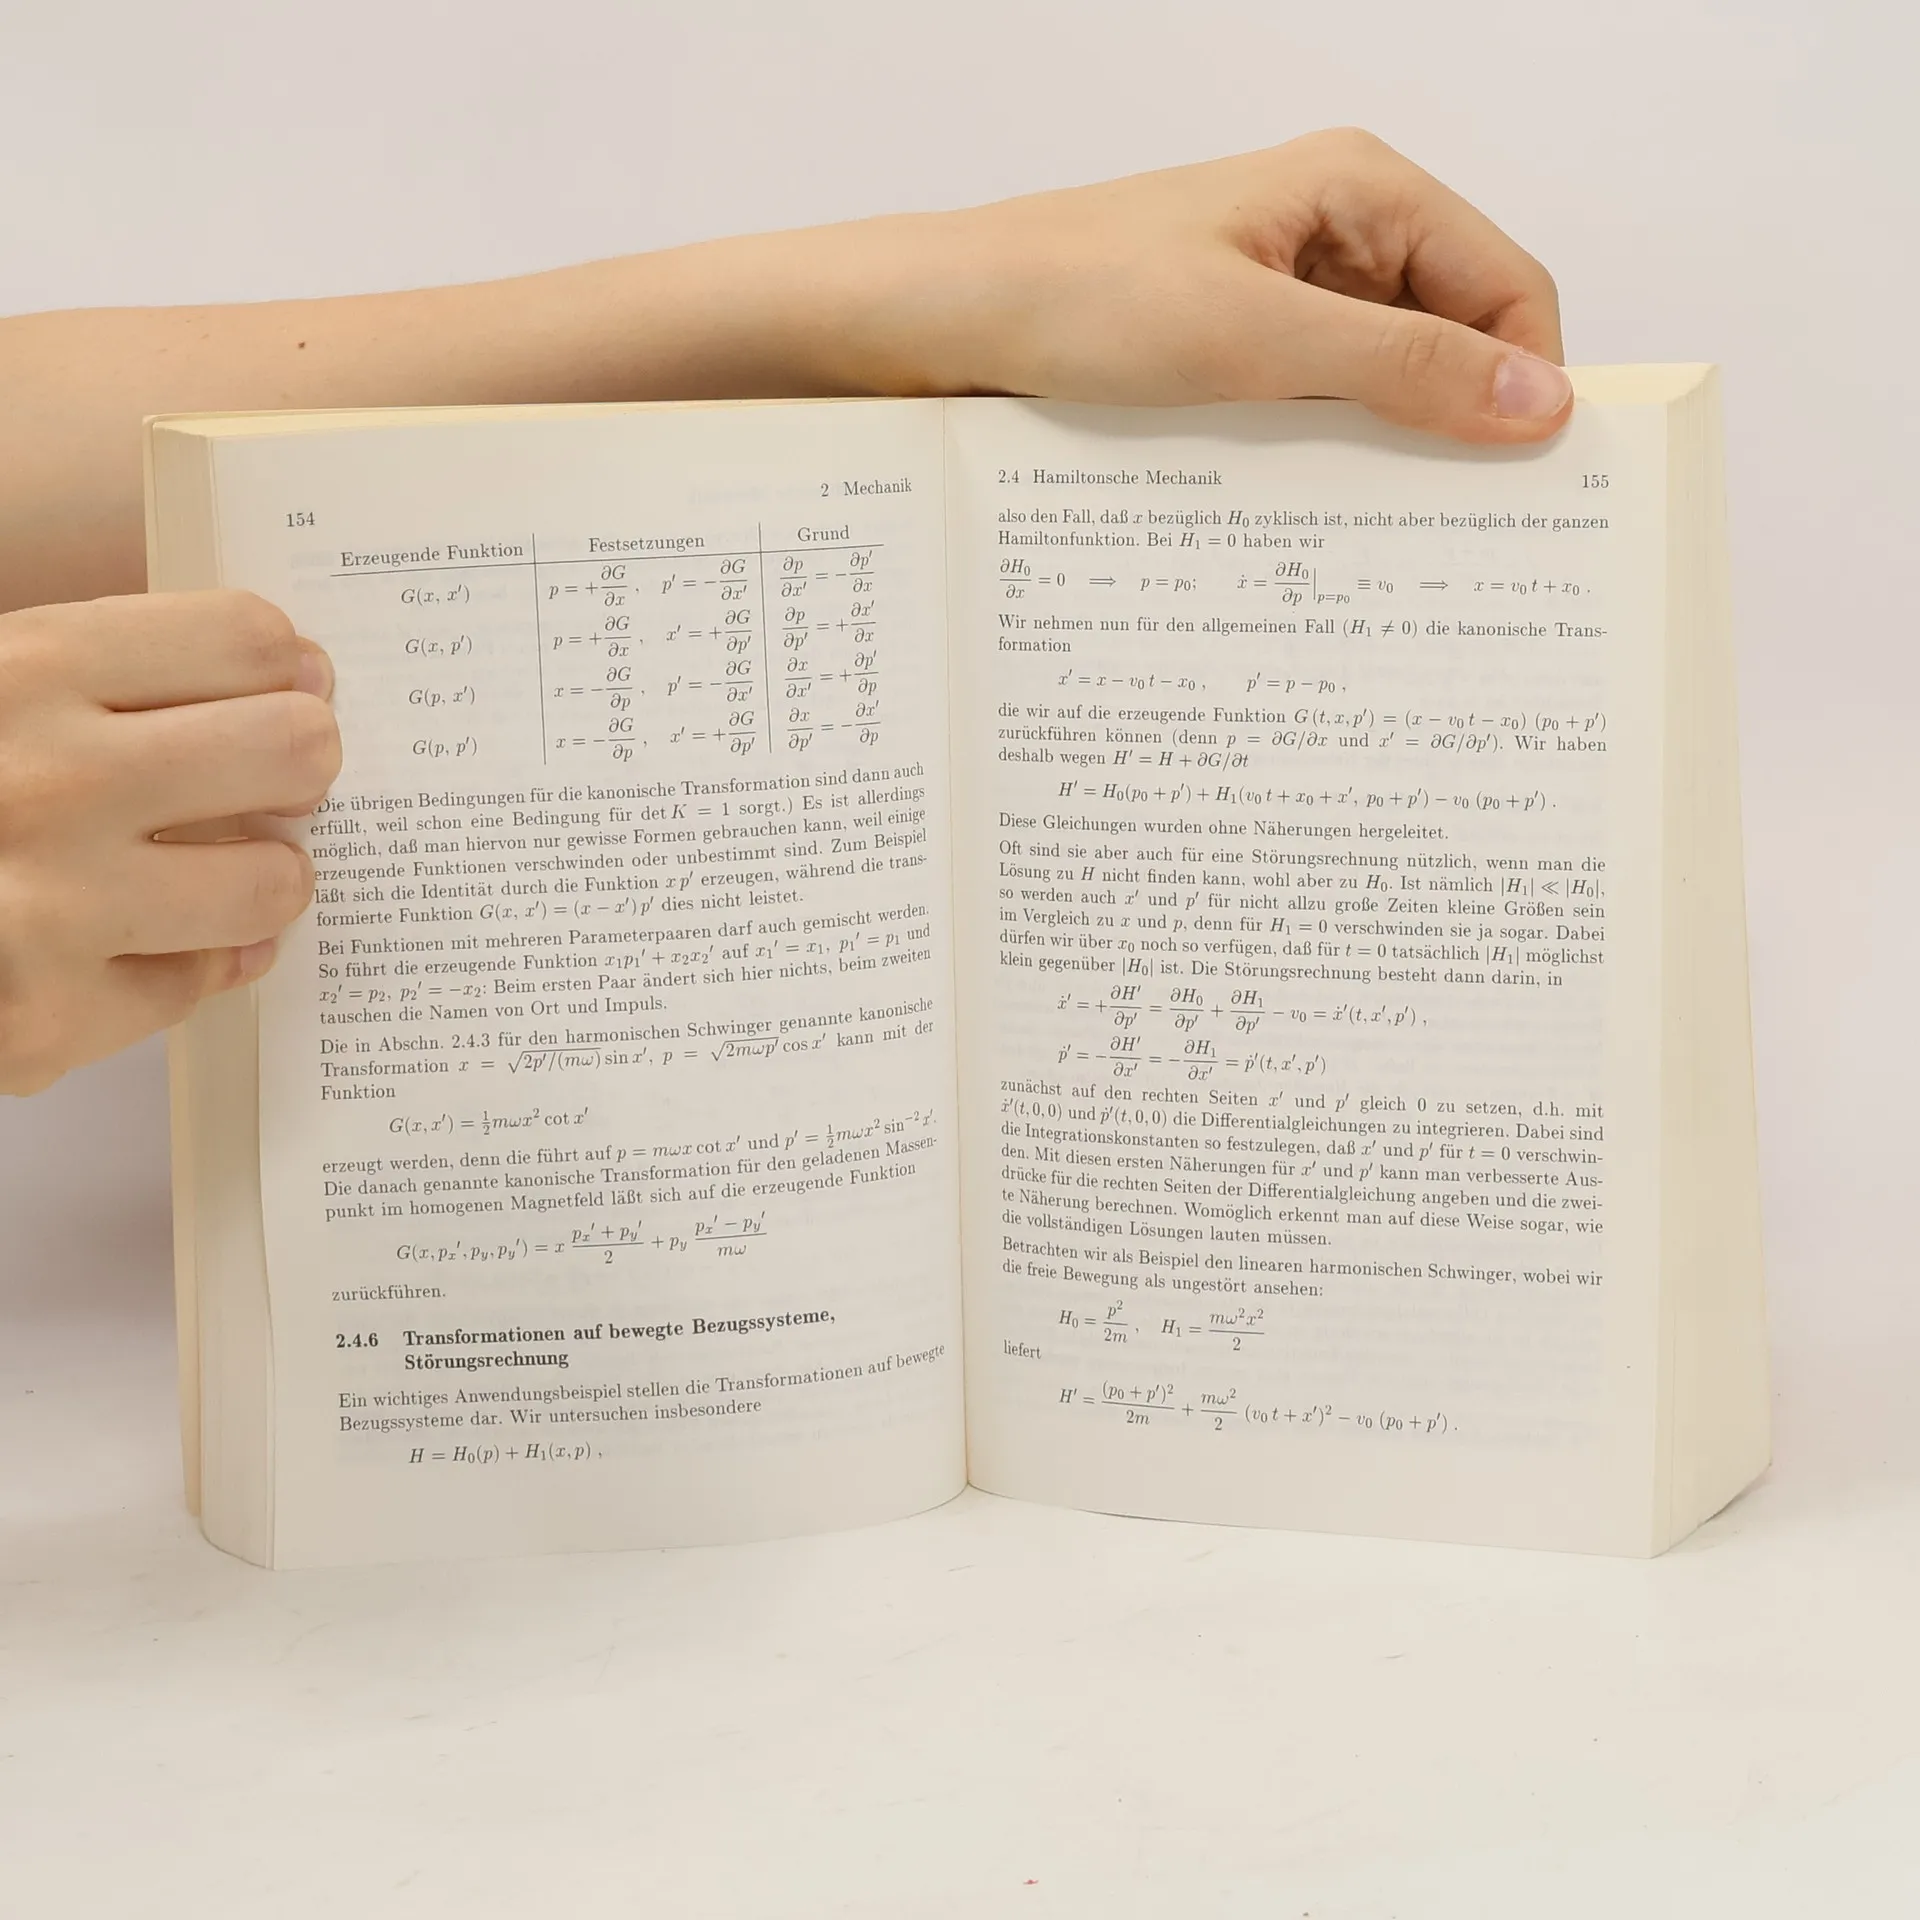 154
2 Mechanik
Erzeugende Funktion | Festsetzungen | Grund
G(x, x′) | p = +∂G/∂x , p′ = −∂G/∂x′ | ∂p/∂x′ = −∂p′/∂x
G(x, p′) | p = +∂G/∂x , x′ = +∂G/∂p′ | ∂p/∂p′ = +∂x′/∂x
G(p, x′) | x = −∂G/∂p , p′ = −∂G/∂x′ | ∂x/∂x′ = +∂p′/∂p
G(p, p′) | x = −∂G/∂p , x′ = +∂G/∂p′ | ∂x/∂p′ = −∂x′/∂p
(Die übrigen Bedingungen für die kanonische Transformation sind dann auch
erfüllt, weil schon eine Bedingung für det K = 1 sorgt.) Es ist allerdings
möglich, daß man hiervon nur gewisse Formen gebrauchen kann, weil einige
erzeugende Funktionen verschwinden oder unbestimmt sind. Zum Beispiel
läßt sich die Identität durch die Funktion x p′ erzeugen, während die trans-
formierte Funktion G(x, x′) = (x − x′) p′ dies nicht leistet.
Bei Funktionen mit mehreren Parameterpaaren darf auch gemischt werden.
So führt die erzeugende Funktion x₁p₁′ + x₂x₂′ auf x₁′ = x₁, p₁′ = p₁ und
x₂′ = p₂, p₂′ = −x₂: Beim ersten Paar ändert sich hier nichts, beim zweiten
tauschen die Namen von Ort und Impuls.
Die in Abschn. 2.4.3 für den harmonischen Schwinger genannte kanonische
Transformation x = √(2p′/(mω)) sin x′, p = √(2mωp′) cos x′ kann mit der
Funktion
G(x, x′) = ½mωx² cot x′
erzeugt werden, denn die führt auf p = mωx cot x′ und p′ = ½mωx² sin⁻² x′.
Die danach genannte kanonische Transformation für den geladenen Massen-
punkt im homogenen Magnetfeld läßt sich auf die erzeugende Funktion
G(x, pₓ′, p_y, p_y′) = x (pₓ′ + p_y′)/2 + p_y (pₓ′ − p_y′)/(mω)
zurückführen.
2.4.6 Transformationen auf bewegte Bezugssysteme,
Störungsrechnung
Ein wichtiges Anwendungsbeispiel stellen die Transformationen auf bewegte
Bezugssysteme dar. Wir untersuchen insbesondere
H = H₀(p) + H₁(x, p) ,
2.4 Hamiltonsche Mechanik
155
also den Fall, daß x bezüglich H₀ zyklisch ist, nicht aber bezüglich der ganzen
Hamiltonfunktion. Bei H₁ = 0 haben wir
∂H₀/∂x = 0 ⟹ p = p₀; ẋ = ∂H₀/∂p|p=p₀ ≡ v₀ ⟹ x = v₀ t + x₀ .
Wir nehmen nun für den allgemeinen Fall (H₁ ≠ 0) die kanonische Trans-
formation
x′ = x − v₀ t − x₀ , p′ = p − p₀ ,
die wir auf die erzeugende Funktion G (t, x, p′) = (x − v₀ t − x₀) (p₀ + p′)
zurückführen können (denn p = ∂G/∂x und x′ = ∂G/∂p′). Wir haben
deshalb wegen H′ = H + ∂G/∂t
H′ = H₀(p₀ + p′) + H₁(v₀ t + x₀ + x′, p₀ + p′) − v₀ (p₀ + p′) .
Diese Gleichungen wurden ohne Näherungen hergeleitet.
Oft sind sie aber auch für eine Störungsrechnung nützlich, wenn man die
Lösung zu H nicht finden kann, wohl aber zu H₀. Ist nämlich |H₁| ≪ |H₀|,
so werden auch x′ und p′ für nicht allzu große Zeiten kleine Größen sein
im Vergleich zu x und p, denn für H₁ = 0 verschwinden sie ja sogar. Dabei
dürfen wir über x₀ noch so verfügen, daß für t = 0 tatsächlich |H₁| möglichst
klein gegenüber |H₀| ist. Die Störungsrechnung besteht dann darin, in
ẋ′ = +∂H′/∂p′ = ∂H₀/∂p′ + ∂H₁/∂p′ − v₀ = ẋ′(t, x′, p′) ,
ṗ′ = −∂H′/∂x′ = −∂H₁/∂x′ = ṗ′(t, x′, p′)
zunächst auf den rechten Seiten x′ und p′ gleich 0 zu setzen, d.h. mit
ẋ′(t, 0, 0) und ṗ′(t, 0, 0) die Differentialgleichungen zu integrieren. Dabei sind
die Integrationskonstanten so festzulegen, daß x′ und p′ für t = 0 verschwin-
den. Mit diesen ersten Näherungen für x′ und p′ kann man verbesserte Aus-
drücke für die rechten Seiten der Differentialgleichung angeben und die zwei-
te Näherung berechnen. Womöglich erkennt man auf diese Weise sogar, wie
die vollständigen Lösungen lauten müssen.
Betrachten wir als Beispiel den linearen harmonischen Schwinger, wobei wir
die freie Bewegung als ungestört ansehen:
H₀ = p²/2m , H₁ = mω²x²/2
liefert
H′ = (p₀ + p′)²/2m + mω²/2 (v₀ t + x′)² − v₀ (p₀ + p′) .